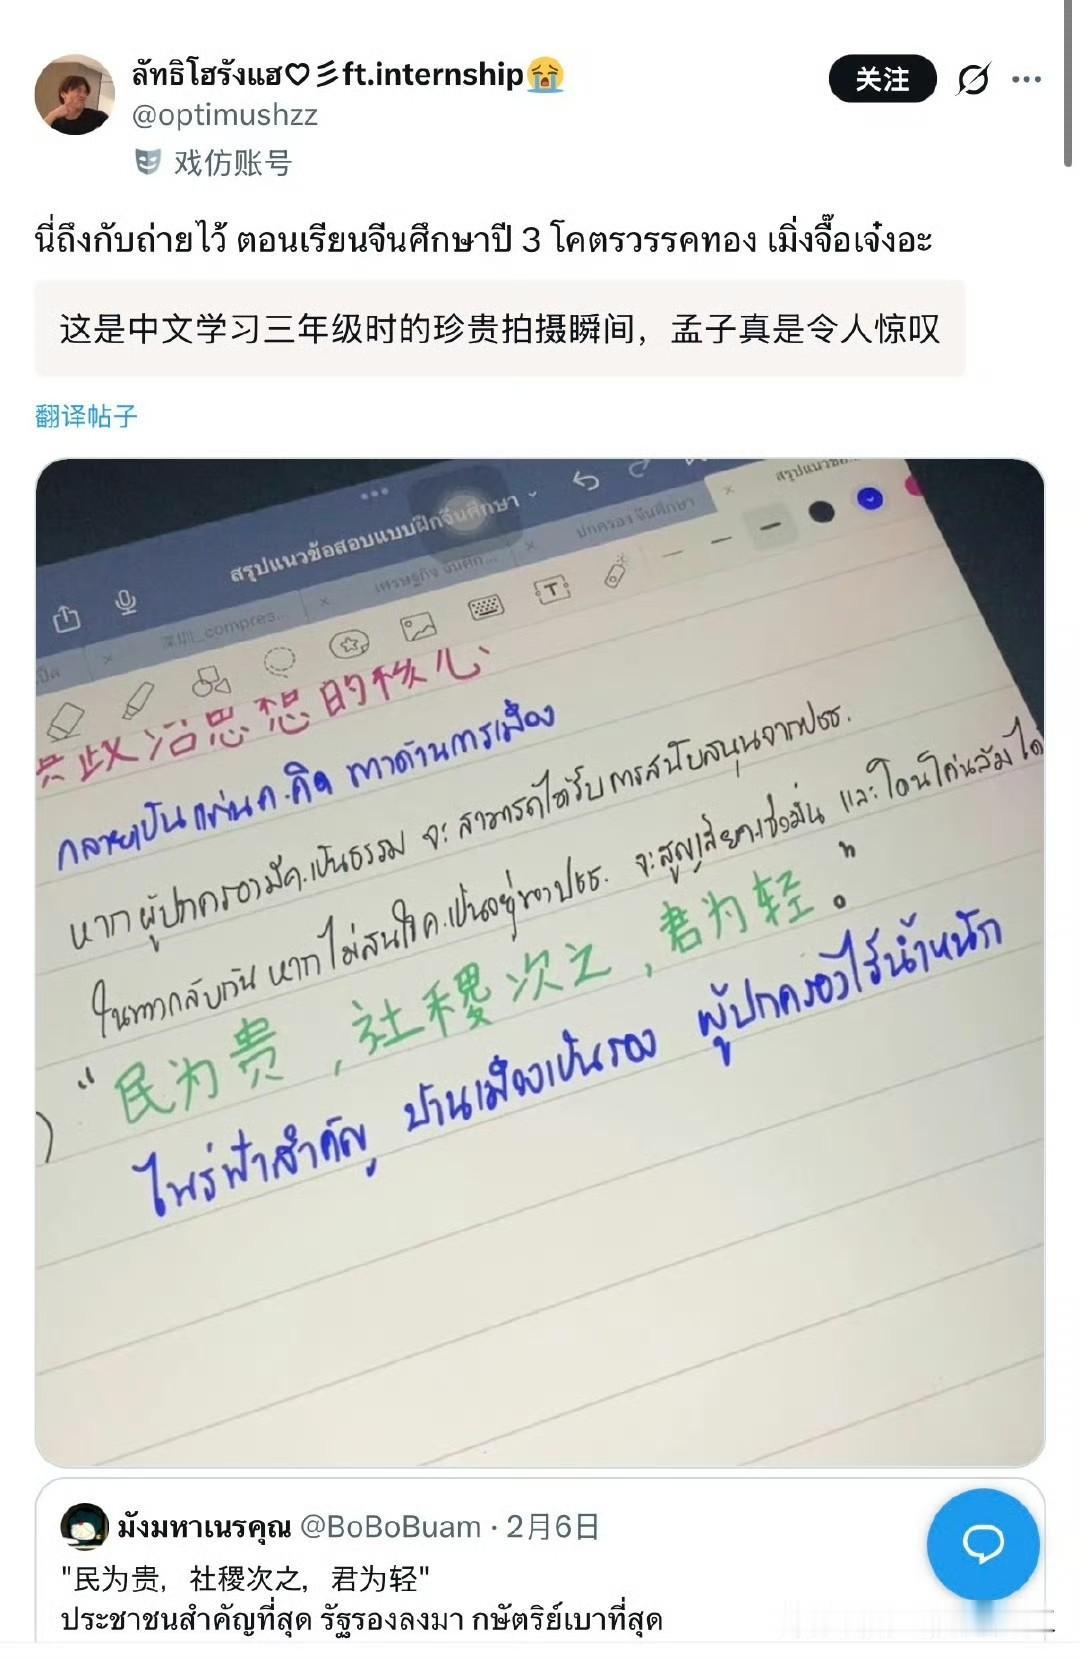 ลัทธิโฮรังแฮ♡彡ft.internship😭
关注
@optimushzz
戏仿账号
นี่ถึงกับถ่ายไว้ ตอนเรียนจีนศึกษาปี 3 โคตรวรรคทอง เมิ่งจื๊อเจ๋งอะ
这是中文学习三年级时的珍贵拍摄瞬间，孟子真是令人惊叹
翻译帖子
สรุปแนวข้อสอบแบบฝึกจีนศึกษา
สรุปแนวข้อ...
ปกครอง จีนศึกษา
เศรษฐกิจ จีนศึก...
深圳_compres...
政治思想的核心
กลายเป็นแก่นค.คิด ทางด้านการเมือง
หากผู้ปกครองมีค.เป็นธรรม จะสามารถได้รับการสนับสนุนจากปชช.
ในทางกลับกัน หากไม่สนใจค.เป็นอยู่ของปชช. จะสูญเสียค.เชื่อมั่น และโดนโค่นล้มได้
"民为贵，社稷次之，君为轻。"
ไพร่ฟ้าสำคัญ บ้านเมืองเป็นรอง ผู้ปกครองไร้น้ำหนัก
มังมหาเนรคุณ @BoBoBuam · 2月6日
"民为贵，社稷次之，君为轻"
ประชาชนสำคัญที่สุด รัฐรองลงมา กษัตริย์เบาที่สุด